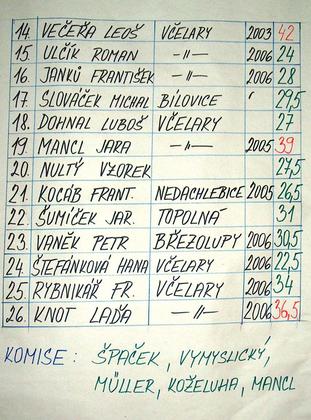 14. VEČEŘA LEOŠ VČELARY 2003 42
15. ULČÍK ROMAN —〃— 2006 24
16. JANKŮ FRANTIŠEK —〃— 2006 28
17. SLOVÁČEK MICHAL BÍLOVICE 29,5
18. DOHNAL LUBOŠ VČELARY 27
19 MANCL JARA —〃— 2005 39
20. NULTÝ VZOREK 27,5
21. KOCÁB FRANT. NEDACHLEBICE 2005 26,5
22. ŠUMÍČEK JAR. TOPOLNÁ 31
23. VANĚK PETR BŘEZOLUPY 2006 30,5
24. ŠTEFÁNKOVÁ HANA VČELARY 2006 22,5
25. RYBNIKÁŘ FR. VČELARY 2006 34
26. KNOT LAĎA —〃— 2006 36,5
KOMISE : ŠPAČEK, VYMYSLICKÝ,
MÜLLER, KOŽELUHA, MANCL